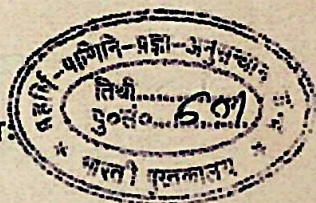 महर्षि-पाणिनि-प्रज्ञा-अनुसन्धान
तिथी..........
पु०सं०... 601
* भारती पुस्तकालय *